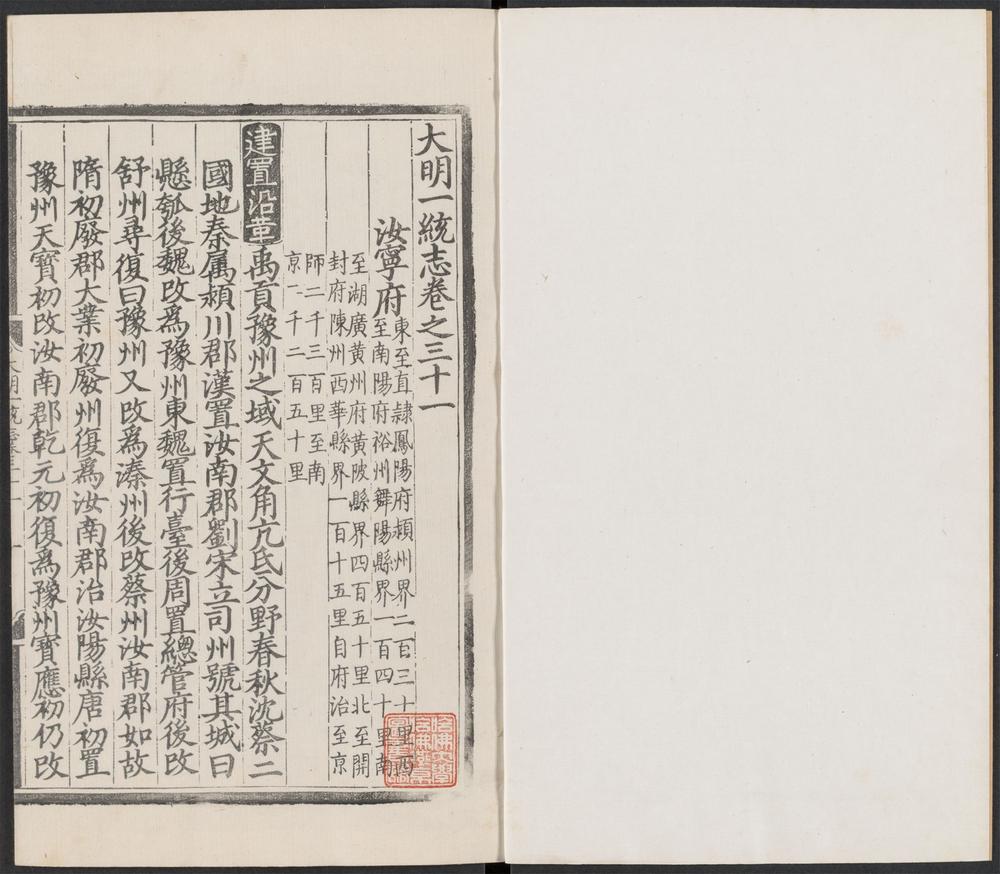 大明一統志卷之三十一
汝寧府
東至直隷鳳陽府頴州界二百三十里西
至南陽府裕州舞陽縣界一百四十里南
至湖廣黄州府黄陂縣界四百五十里北至開
封府陳州西華縣界一百十五里自府治至京
師二千三百里至南
京一千二百五十里
建置沿革禹貢豫州之域天文角亢氐分野春秋沈蔡二
國地秦属頴川郡漢置汝南郡劉宋立司州號其城曰
懸瓠後魏改爲豫州東魏置行臺後周置總管府後改
舒州尋復曰豫州又改爲溱州後改蔡州汝南郡如故
隋初廢郡大業初廢州復爲汝南郡治汝陽縣唐初置
豫州天寶初改汝南郡乾元初復爲豫州寶應初仍改